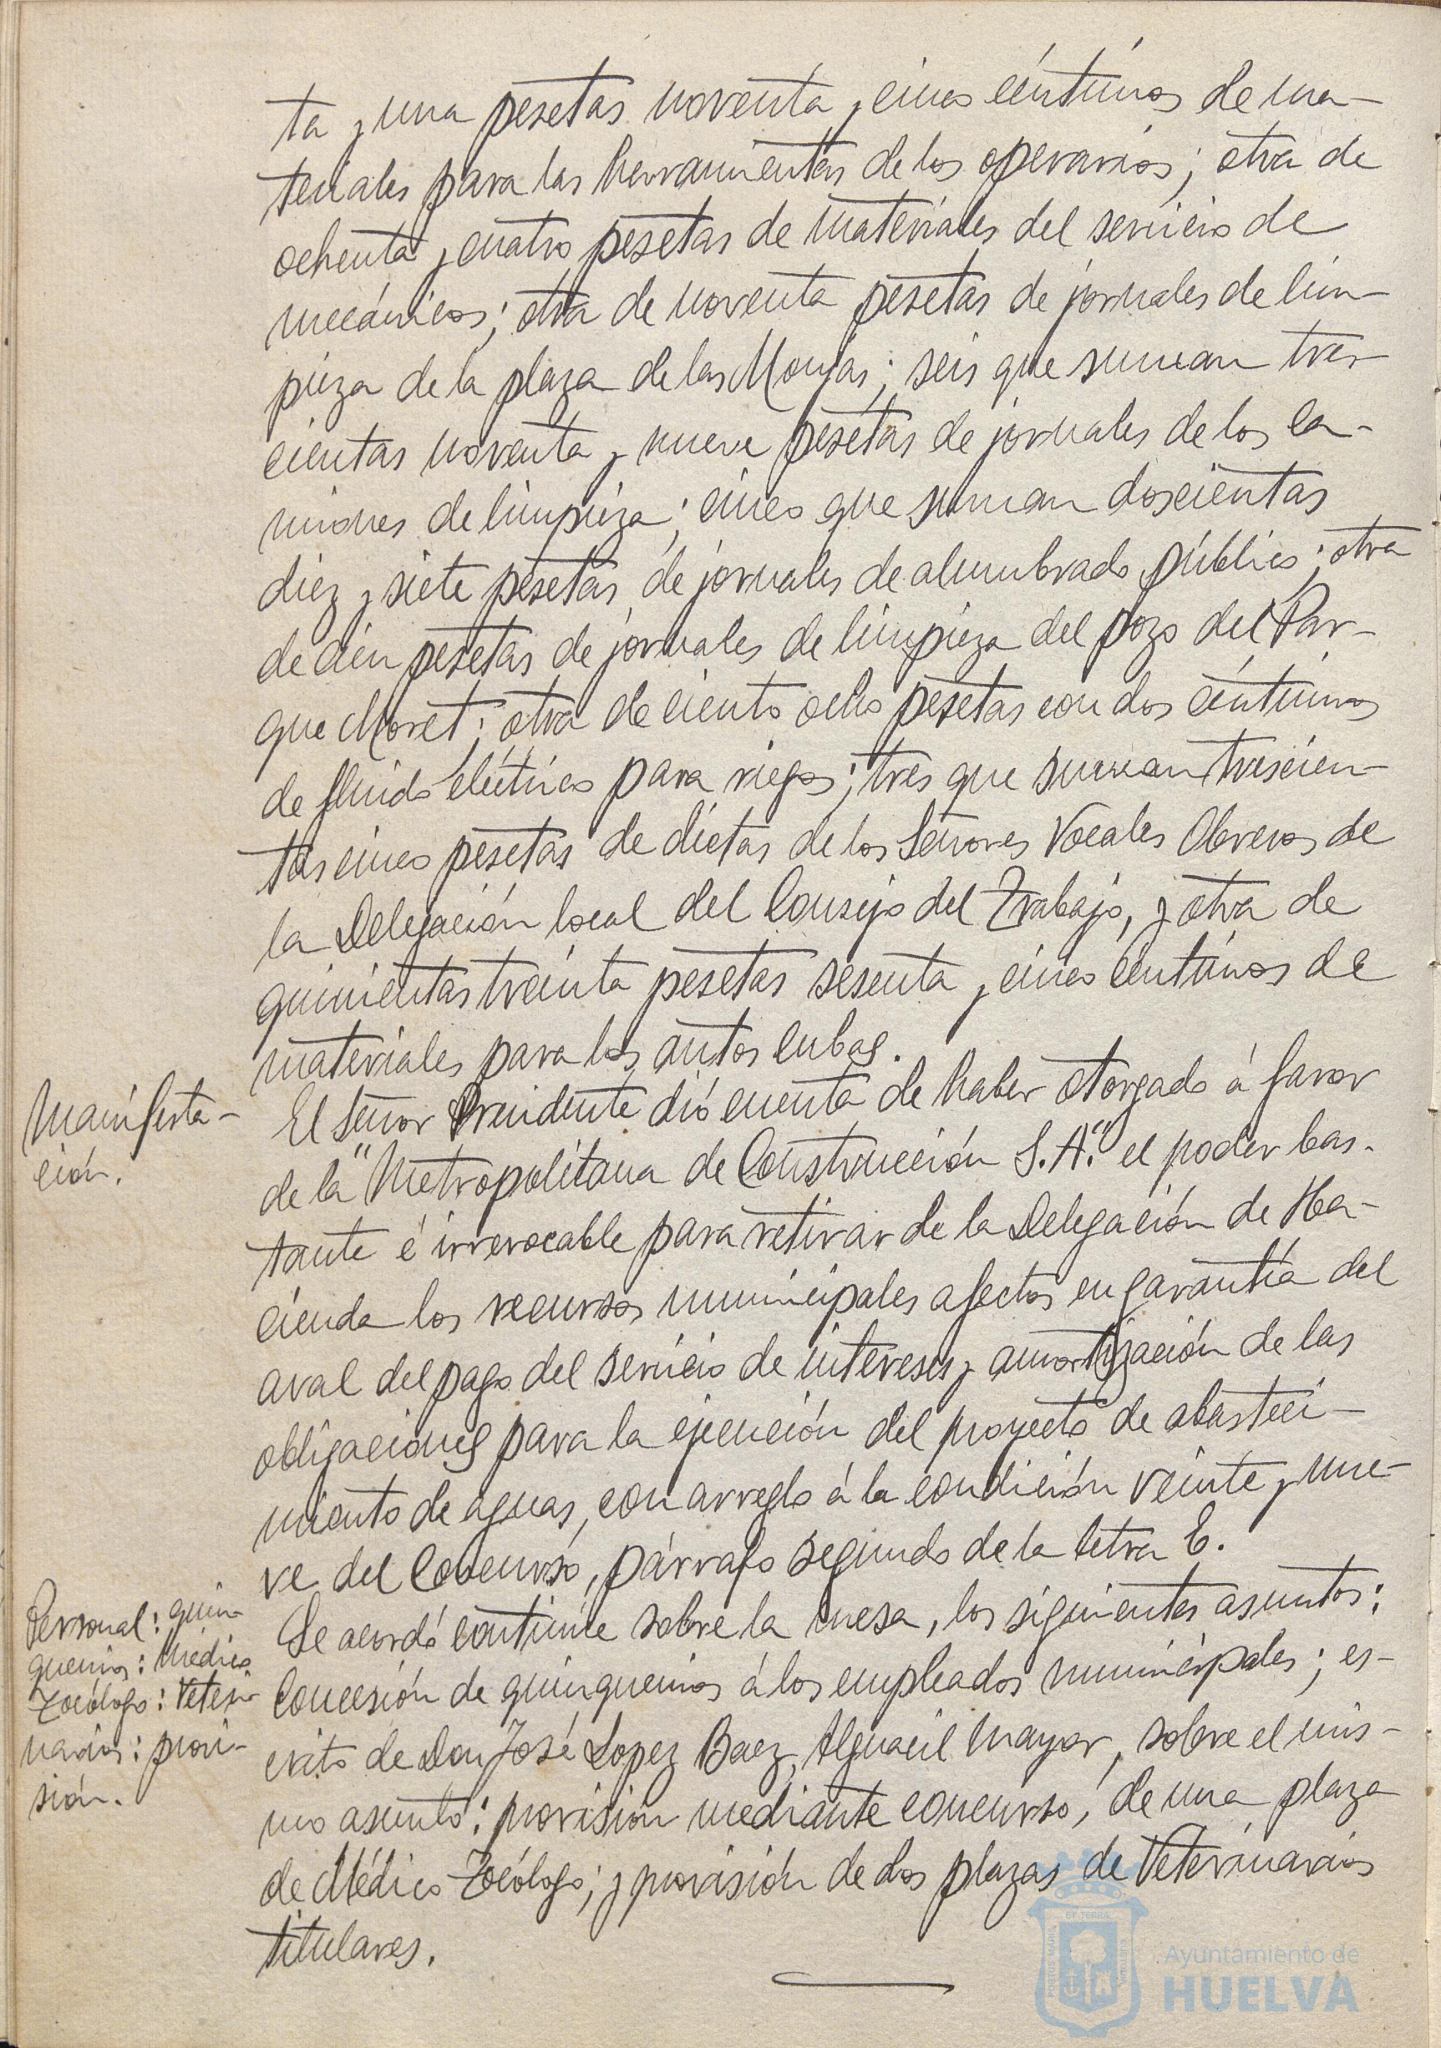 ta y una pesetas noventa y cinco céntimos de ma-
teriales para las herramientas de los operarios; otra de
ochenta y cuatro pesetas de materiales del servicio de
mecánicos; otra de noventa pesetas de jornales de lim-
pieza de la plaza de las Monjas; seis que suman tres-
cientas noventa y nueve pesetas de jornales de los ca-
miones de limpieza; cinco que suman doscientas
diez y siete pesetas de jornales de alumbrado público; otra
de cien pesetas de jornales de limpieza del pozo del Par-
que Moret; otra de ciento ocho pesetas con dos céntimos
de fluido eléctrico para riegos; tres que suman trescien-
tas cinco pesetas de dietas de los Señores Vocales Obreros de
la Delegación local del Consejo del Trabajo, y otra de
quinientas treinta pesetas sesenta y cinco céntimos de
materiales para los autos cubas.
Manifesta-
ción.
El Señor Presidente dió cuenta de haber otorgado á favor
de la "Metropolitana de Construcción S.A." el poder bas-
tante é irrevocable para retirar de la Delegación de Ha-
cienda los recursos municipales afectos en garantía del
aval del pago del servicio de intereses y amortización de las
obligaciones para la ejecución del proyecto de abasteci-
miento de aguas, con arreglo á la condición veinte y nue-
ve del Concurso, párrafo segundo de la letra E.
Personal: quin-
quenios: Médico
Tocólogo: Veteri-
narios: provi-
sión.
Se acordó continúe sobre la mesa, los siguientes asuntos:
Concesión de quinquenios á los empleados municipales; es-
crito de Don José Lopez Baez, Alguacil Mayor, sobre el mis-
mo asunto: provisión mediante concurso, de una plaza
de Médico Tocólogo; y provisión de dos plazas de Veterinarios
titulares.
Ayuntamiento de
HUELVA